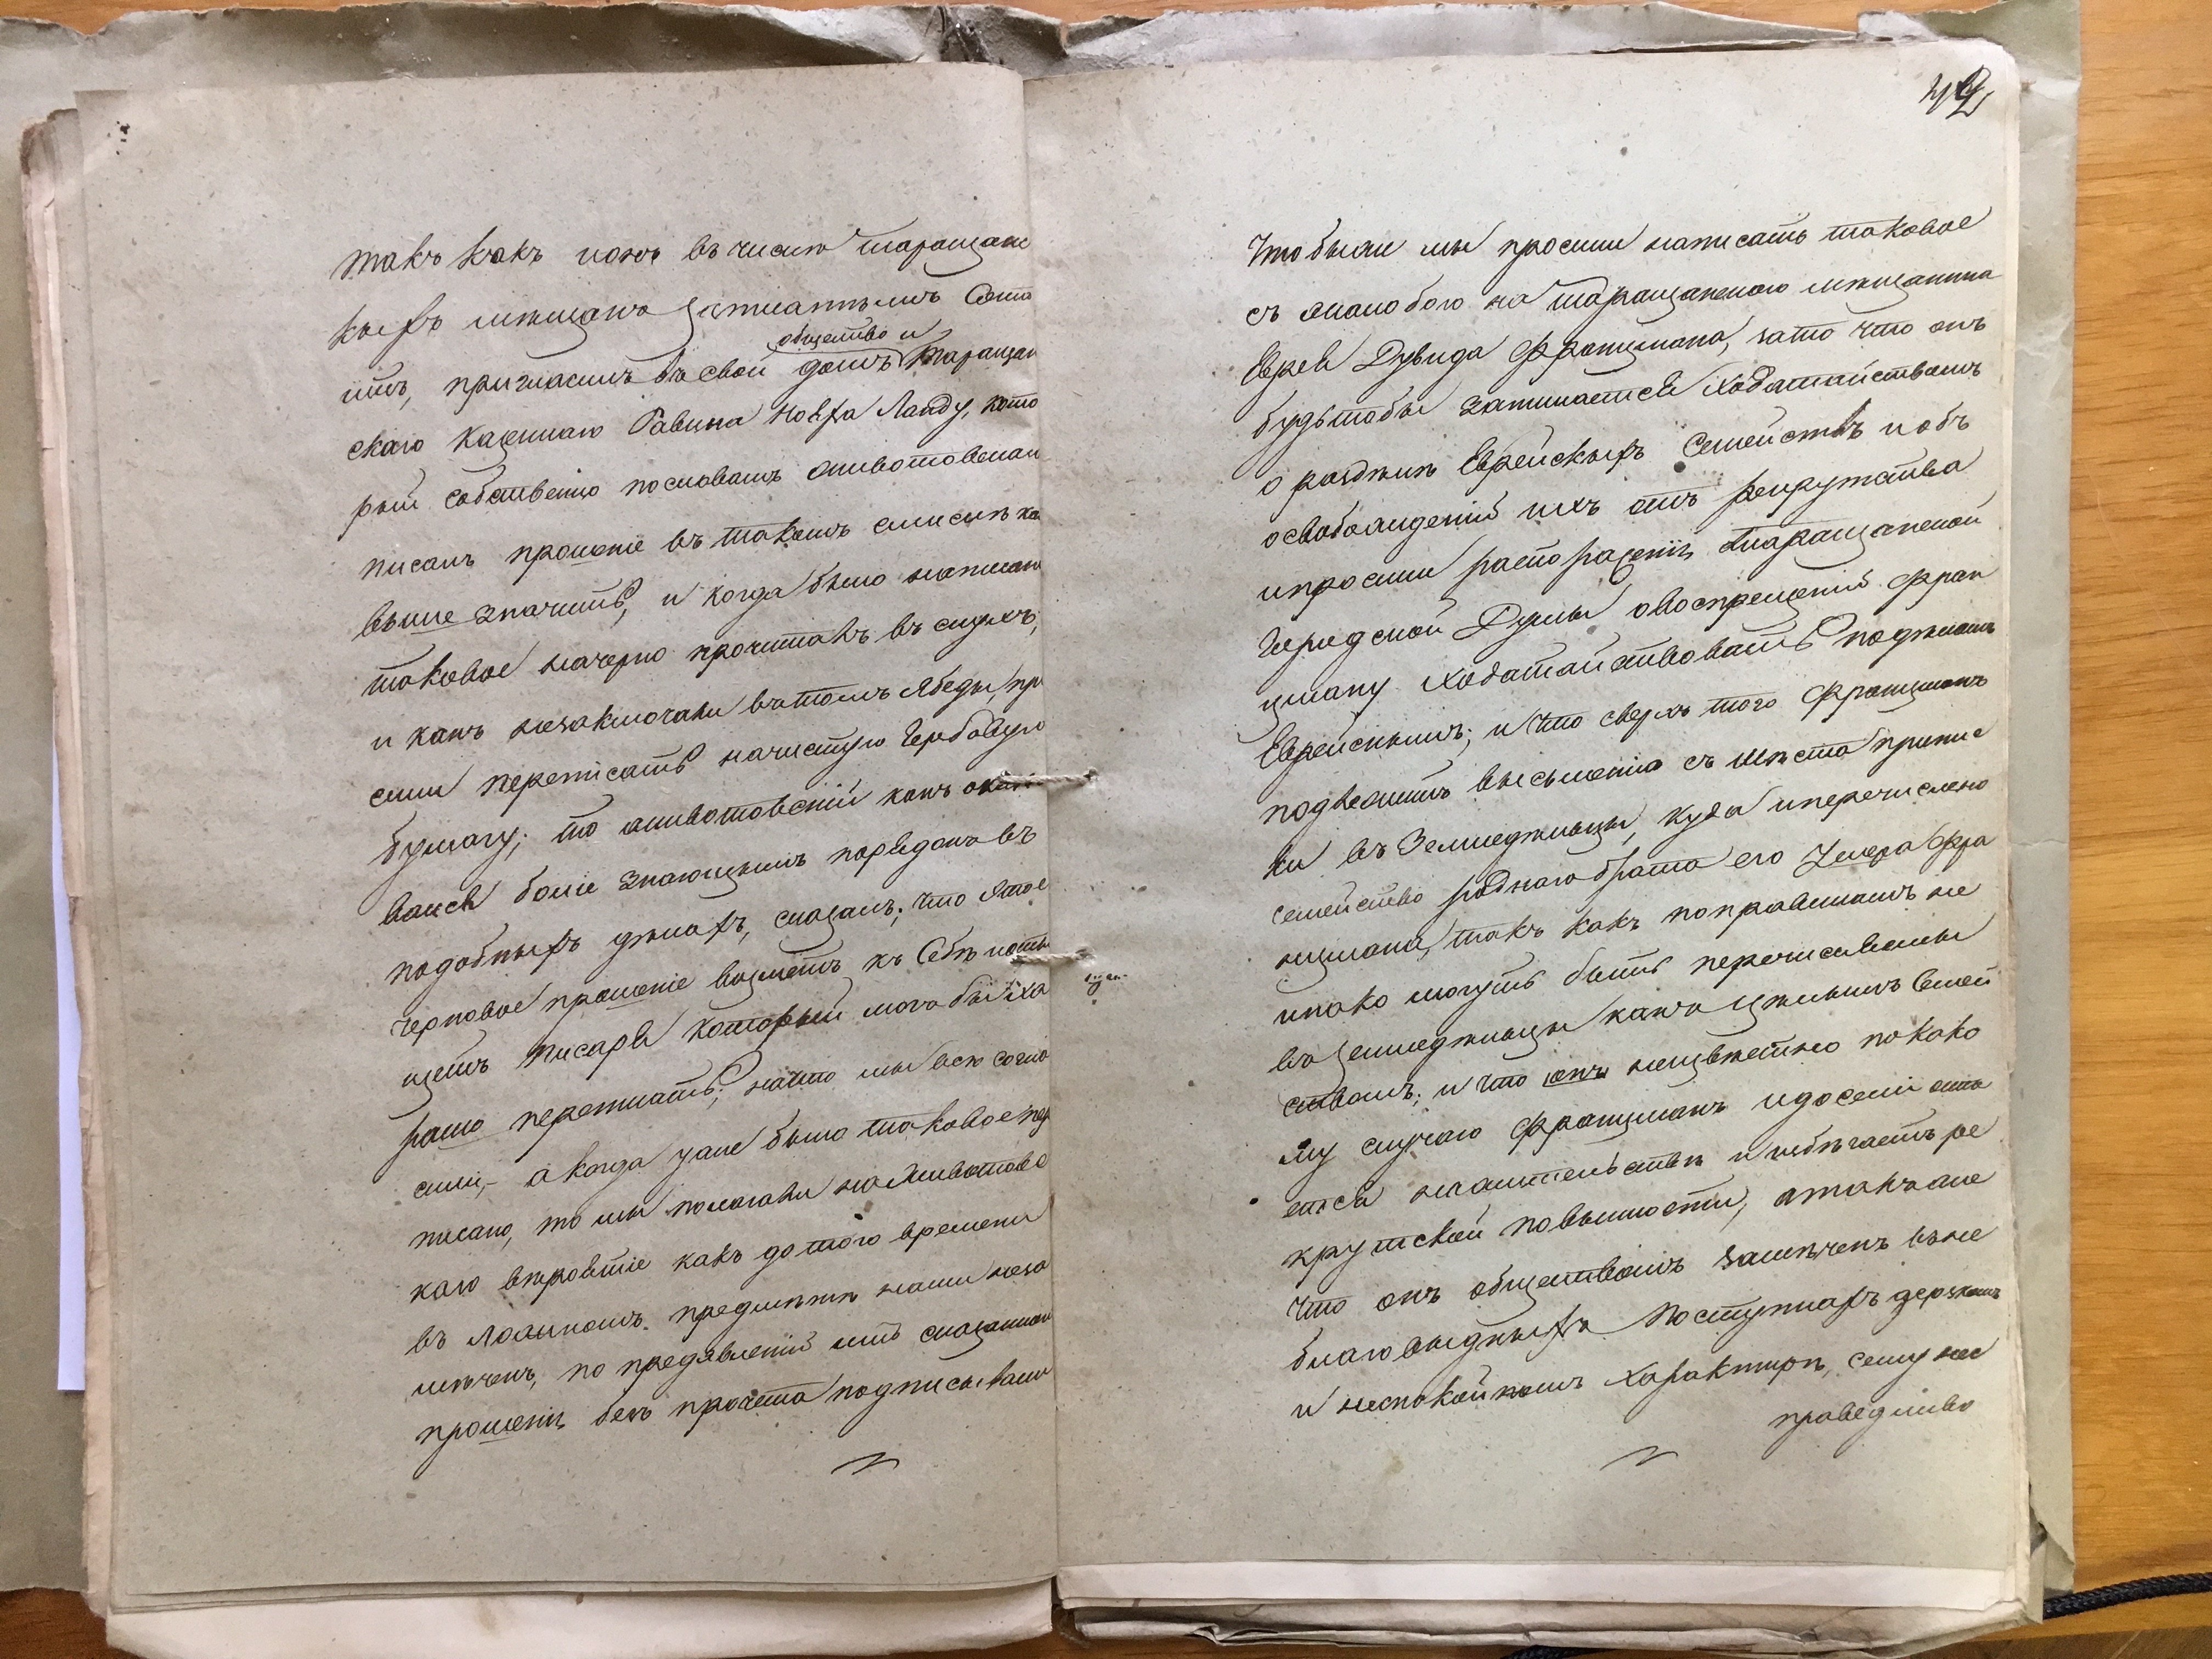 такъ какъ и онъ въ числѣ таращанс
кихъ мѣщанъ записаннымъ состо
общество и
итъ, пригласилъ въ свой домъ таращан
скаго казеннаго Равина Ланду, кото
рый собственно по словамъ Животовскаго
писалъ прошеніе въ такомъ смыслѣ ка
выше значитъ, и когда было написано
таковое начерно прочиталъ въ слухъ,
и какъ незаключали въ томъ ябеды, про
сили переписать начистую гербовую
бумагу; то Животовскій какъ оказы
вался боліе знающимъ порядокъ въ
подобныхъ дѣлахъ, сказалъ; что этое
черновое прошеніе возметъ къ себѣ и оты
щетъ писаря который могъ бы хо
рашо переписать; на что мы всѣ согла
сили, а когда уже было таковое пере
писано, то мы полагали на Животовс
каго вѣроятіе какъ до того времени
въ ложномъ предметѣ нами неза
мѣченъ, по предявленій имъ сказанном
прошеніи безъ прочета подписывали
42
что были мы просили написать таковое
съ жалобою на таращанскаго мѣщанина
Еврея Дувида Францмана, зато что онъ
будьтобы занимается ходатайствомъ
о раздѣлѣ Еврейскихъ семействъ и объ
освобожденій ихъ отъ рекрутства
и просили распоряженія таращанской
Городской Думы о воспрещеній Фран
цману ходатайствовать по дѣламъ
Еврейскимъ; и что сверхъ того Францманъ
подлежитъ высыленію съ мѣста припис
ки въ Земледѣльцы, куда и перечислено
семейство роднаго брата его Фра
нцмана, такъ какъ по правиламъ не
инако могутъ быть перечисляемы
въ земледѣльцы какъ цѣлымъ семей
ствомъ; и что онъ неизвѣстно по како
му случаю Францманъ и доселі оста
ется на жительствѣ и избѣгаетъ ре
крутской повинности, а также
что онъ обществомъ замѣченъ въ не
благовидныхъ поступкахъ дерзкомъ
и неспокойномъ характирѣ, сему нес
праведливо